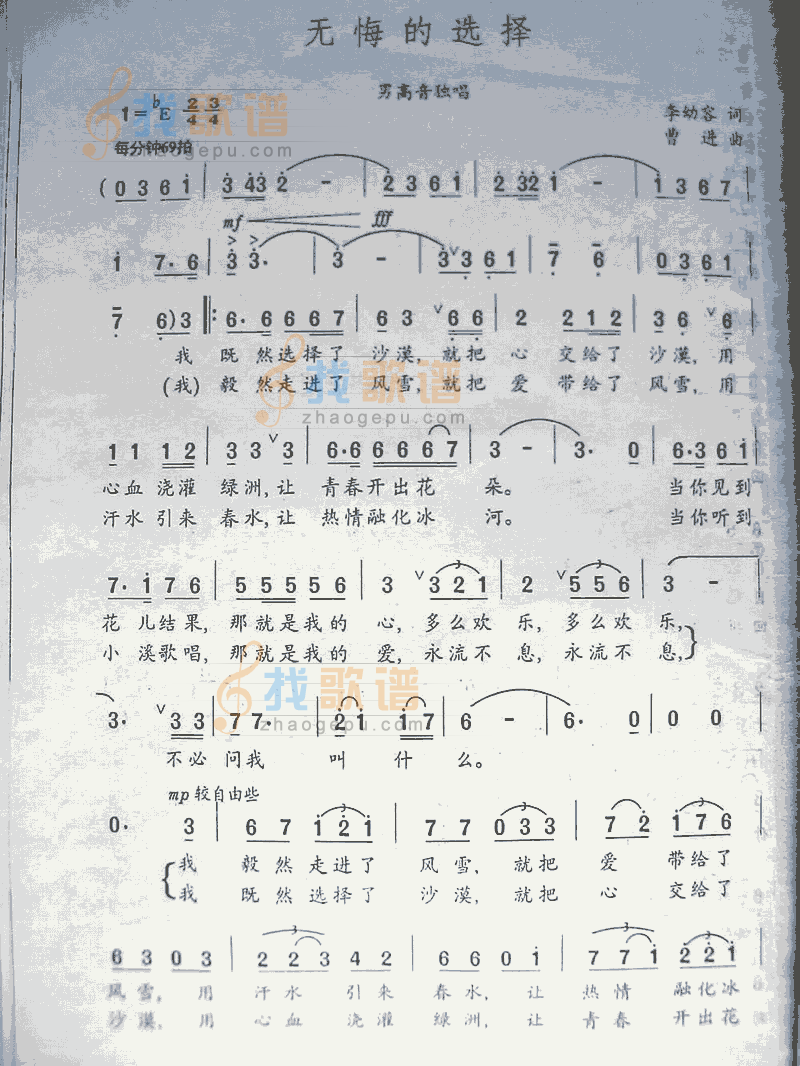 无悔的选择
男高音独唱
1=♭E 2/4 3/4
李幼容 词
每分钟69拍
曹进 曲
找歌谱
zhaogepu.com
(0 3 6 1 | 3 4 3 2 - | 2 3 6 1 | 2 3 2 1 - | 1 3 6 7 |
mf fff
1 7· 6 | 3 3· | 3 - | 3 3 6 1 | 7 6 | 0 3 6 1 |
7 6) 3 |: 6· 6 6 6 7 | 6 3 6 6 | 2 2 1 2 | 3 6 6 |
我 既然选择了 沙漠,就把 心 交给了 沙漠,用
(我) 毅然走进了 风雪,就把 爱 带给了 风雪,用
找歌谱
zhaogepu.com
1 1 1 2 | 3 3 3 | 6· 6 6 6 6 6 7 | 3 - | 3· 0 | 6· 3 6 1 |
心血 浇灌 绿洲,让 青春开出花 朵。 当你见到
汗水 引来 春水,让 热情融化冰 河。 当你听到
7· 1 7 6 | 5 5 5 5 6 | 3 3 2 1 | 2 5 5 6 | 3 - |
花儿结果,那就是我的 心,多么欢 乐,多么欢 乐,
小溪歌唱,那就是我的 爱,永流不 息,永流不 息,
找歌谱
zhaogepu.com
3· 3 3 | 7 7· | 2 1 1 7 | 6 - | 6· 0 | 0 0 |
不必 问我 叫 什 么。
mp 较自由些
0· 3 | 6 7 1 2 1 | 7 7 0 3 3 | 7 2 1 7 6 |
我 毅然走进了 风雪,就把 爱 带给了
我 既然选择了 沙漠,就把 心 交给了
6 3 0 3 | 2 2 3 4 2 | 6 6 0 1 | 7 7 1 2 2 1 |
风雪,用 汗水 引来 春水,让 热情 融化冰
沙漠,用 心血 浇灌 绿洲,让 青春 开出花